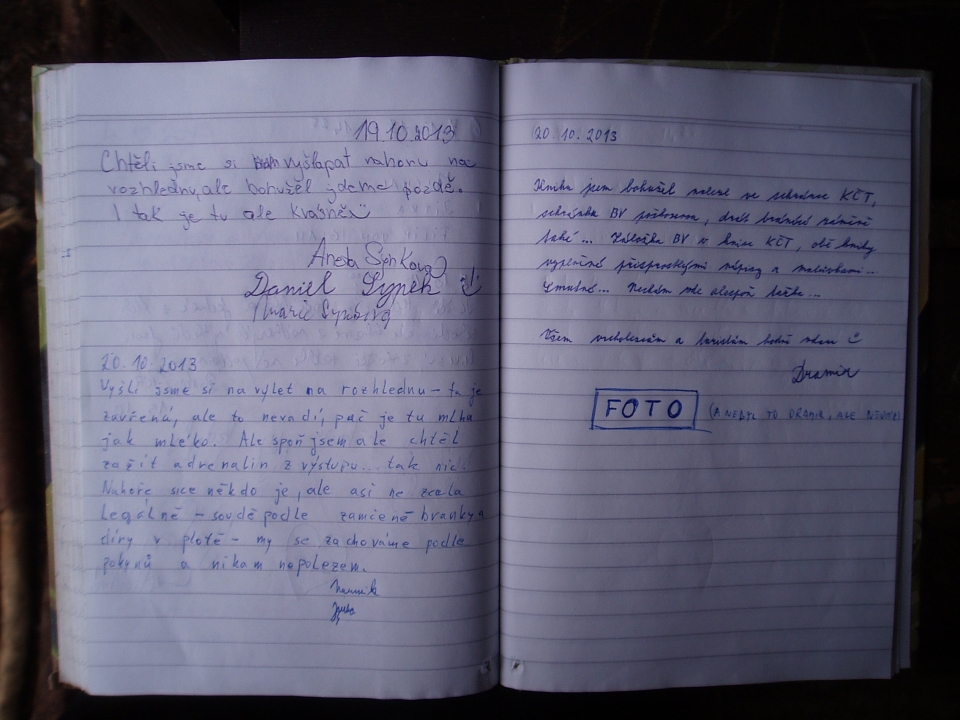 19.10.2013
Chtěli jsme si vyšlapat nahoru na
rozhlednu, ale bohužel jdeme pozdě.
I tak je tu ale krásně
Aneta Synková
Daniel Synek
Marie Synková
20.10.2013
Vyšli jsme si na výlet na rozhlednu – ta je
zavřená, ale to nevadí, pač je tu mlha
jak mléko. Ale spoň jsem ale chtěl
zažít adrenalin z výstupu.. tak nic.
Nahoře sice někdo je, ale asi ne zcela
legálně – soudě podle zamčené branky a
díry v plotě – my se zachováme podle
pokynů a nikam nepolezem.
20.10.2013
jsem bohužel nalezl ve schránce KČT,
schránka BV
také ... BV v knize KČT, obě knihy
a malůvkami...
Smutné... Nechám zde alespoň
Všem vrcholařům a
FOTO
(A NEBYL TO ALE